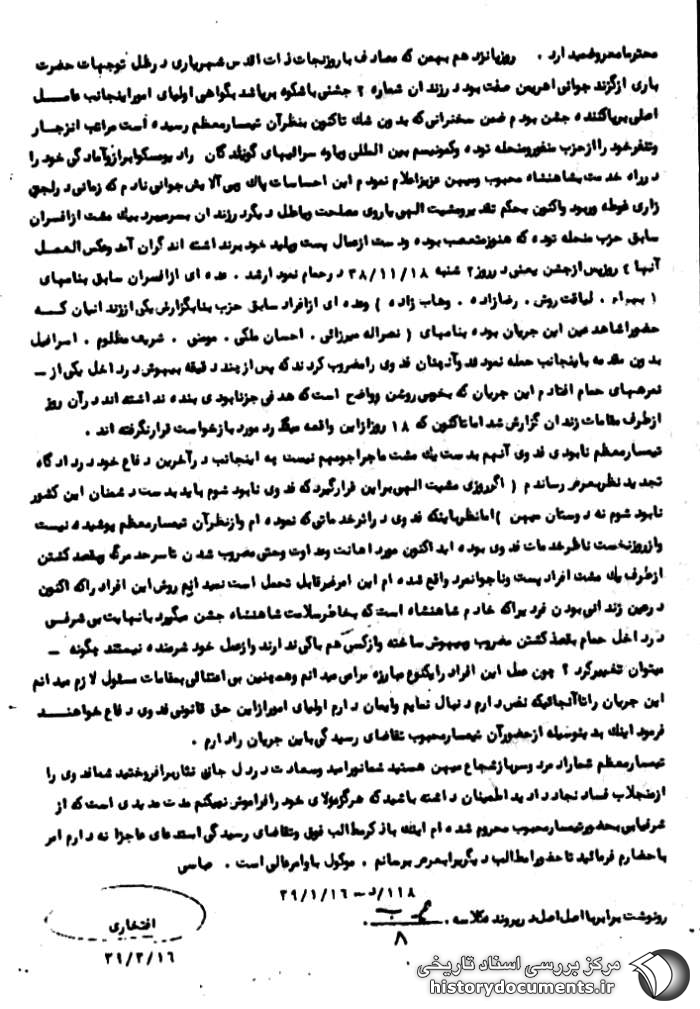 محترما معروضمیدارد . روز پانزدهم بهمن که مصادف با روز نجات ذات اقدس شهریاری در ظل توجهات حضرت
باری از گزند جوانی اهریمن صفت بود در زندان شماره ۲ جشنی باشکوه برپا شد بگواهی اولیای امور اینجانب عامل
اصلی برپا کننده جشن بودم ضمن سخنرانی که بدون شك تاکنون بنظر آن تیمسار معظم رسیده است مراتب انزجار
وتنفر خود را از حزب منفور ومنحله توده وکمونیسم بین المللی ویاوه سرائیهای گویندگان رادیو مسکو ابراز وآمادگی خود را
در راه خدمت بشاهنشاه محبوب ومیهن عزیز اعلام نمودم این احساسات پاك وبی آلایش جوانی نادم که زمانی در لجن
زاری غوطه ور بود واکنون بحکم تقدیر ومشیت الهی با روی مصلحت وباطل دیگر در زندان بسر میبرد بیك مشت از افسران
سابق حزب منحله توده که هنوز متعصب بوده ودست از اعمال پست وپلید خود برنداشته اند گران آمد وعکس العمل
آنها ٤ روز پس از جشن یعنی در روز ۲ شنبه ۳۸/۱۱/۱۸ در حمام نمودار شد . عده ای از افسران سابق بنامهای
( بهراد . لیاقت روش . رضازاده . وهاب زاده ) وعده ای از افراد سابق حزب بنا بگزارش یکی از زندانیان کـه
حضورا شاهد عین این جریان بوده بنامهای ( نصراله میرزائی . احسان ملکی . مومنی . شریف مظلوم . اسرافیل
بدون مقدمه باینجانب حمله نمودند وآنچنان فدوی را مضروب کردند که پس از چند دقیقه بیهوش در داخل یکی از ـ
نمرههای حمام افتادم این جریان که بخوبی روشن وواضح است که هدفی جز نابودی بنده نداشته اند در آن روز
از طرف مقامات زندان گزارش شد اما تاکنون که ۱۸ روز از این واقعه میگذرد مورد بازخواست قرار نگرفته اند .
تیمسار معظم نابودی فدوی آنهم بدست یك مشت ماجراجو مهم نیست چه اینجانب در آخرین دفاع خود در دادگاه
تجدید نظر بعرض رساندم ( اگر روزی مشیت الهی بر این قرار گیرد که فدوی نابود شوم باید بدست دشمنان این کشور
نابود شوم نه دوستان میهن ) اما نظر باینکه فدوی در اثر خدماتی که نموده ام واز نظر آن تیمسار معظم پوشیده نیست
واز روز نخست ناظر خدمات فدوی بوده اید اکنون مورد اهانت وعداوت وحتی مضروب شدن تا سرحد مرگ وبقصد کشتن
از طرف یك مشت افراد پست وناجوانمرد واقع شده ام این امر غیر قابل تحمل است نمیدانم روش این افراد را که اکنون
در عین زندانی بودن فردیرا که خادم شاهنشاه است که بخاطر سلامت شاهنشاه جشن میگیرد با نهایت بی شرفی
در داخل حمام بقصد کشتن مضروب وبیهوش ساخته واز کسی هم باکی ندارند واز عمل خود شرمنده نیستند چگونه ـ
میتوان تفسیر کرد ؟ چون عمل این افراد را یکنوع مبارزه مرامی میدانم وهمچنین بی اعتنائی بمقامات مسئول لازم میدانم
این جریان را تا آنجائیکه نفس دارم دنبال نمایم وایمان دارم اولیای امور از این حق قانونی فدوی دفاع خواهنـد
فرمود اینك بدینوسیله از حضور آن تیمسار محبوب تقاضای رسیدگی باین جریان را دارم .
تیمسار معظم شما رادمرد وسرباز شجاع میهن هستید شما نور امید وسعادت در دل جای نثار برافروختید شما فدوی را
از منجلاب فساد نجات دادید اطمینان داشته باشید که هرگز مولای خود را فراموش نمیکنم مدت مدیدی است که از
شرفیابی بحضور تیمسار محبوب محروم شده ام اینك با ذکر مطالب فوق وتقاضای رسیدگی استدعای عاجزانه دارم امر
باحضارم فرمائید تا حضورا مطالب دیگر را بعرض برسانم . موکول باوامر عالی است . عباسی
۱۱۸/د ـ ۳۹/۱/۱۶
رونوشت برابر با اصل است در پرونده کلاسه .
۸
افتخاری
۳۹/۲/۱۶
مرکز بررسی اسناد تاریخی
historydocuments.ir